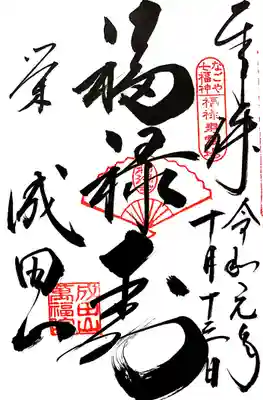 奉拝
令和元年
十月十三日
なごや
七福神
福禄寿
福禄寿
栄
成田山
成田山
萬福院